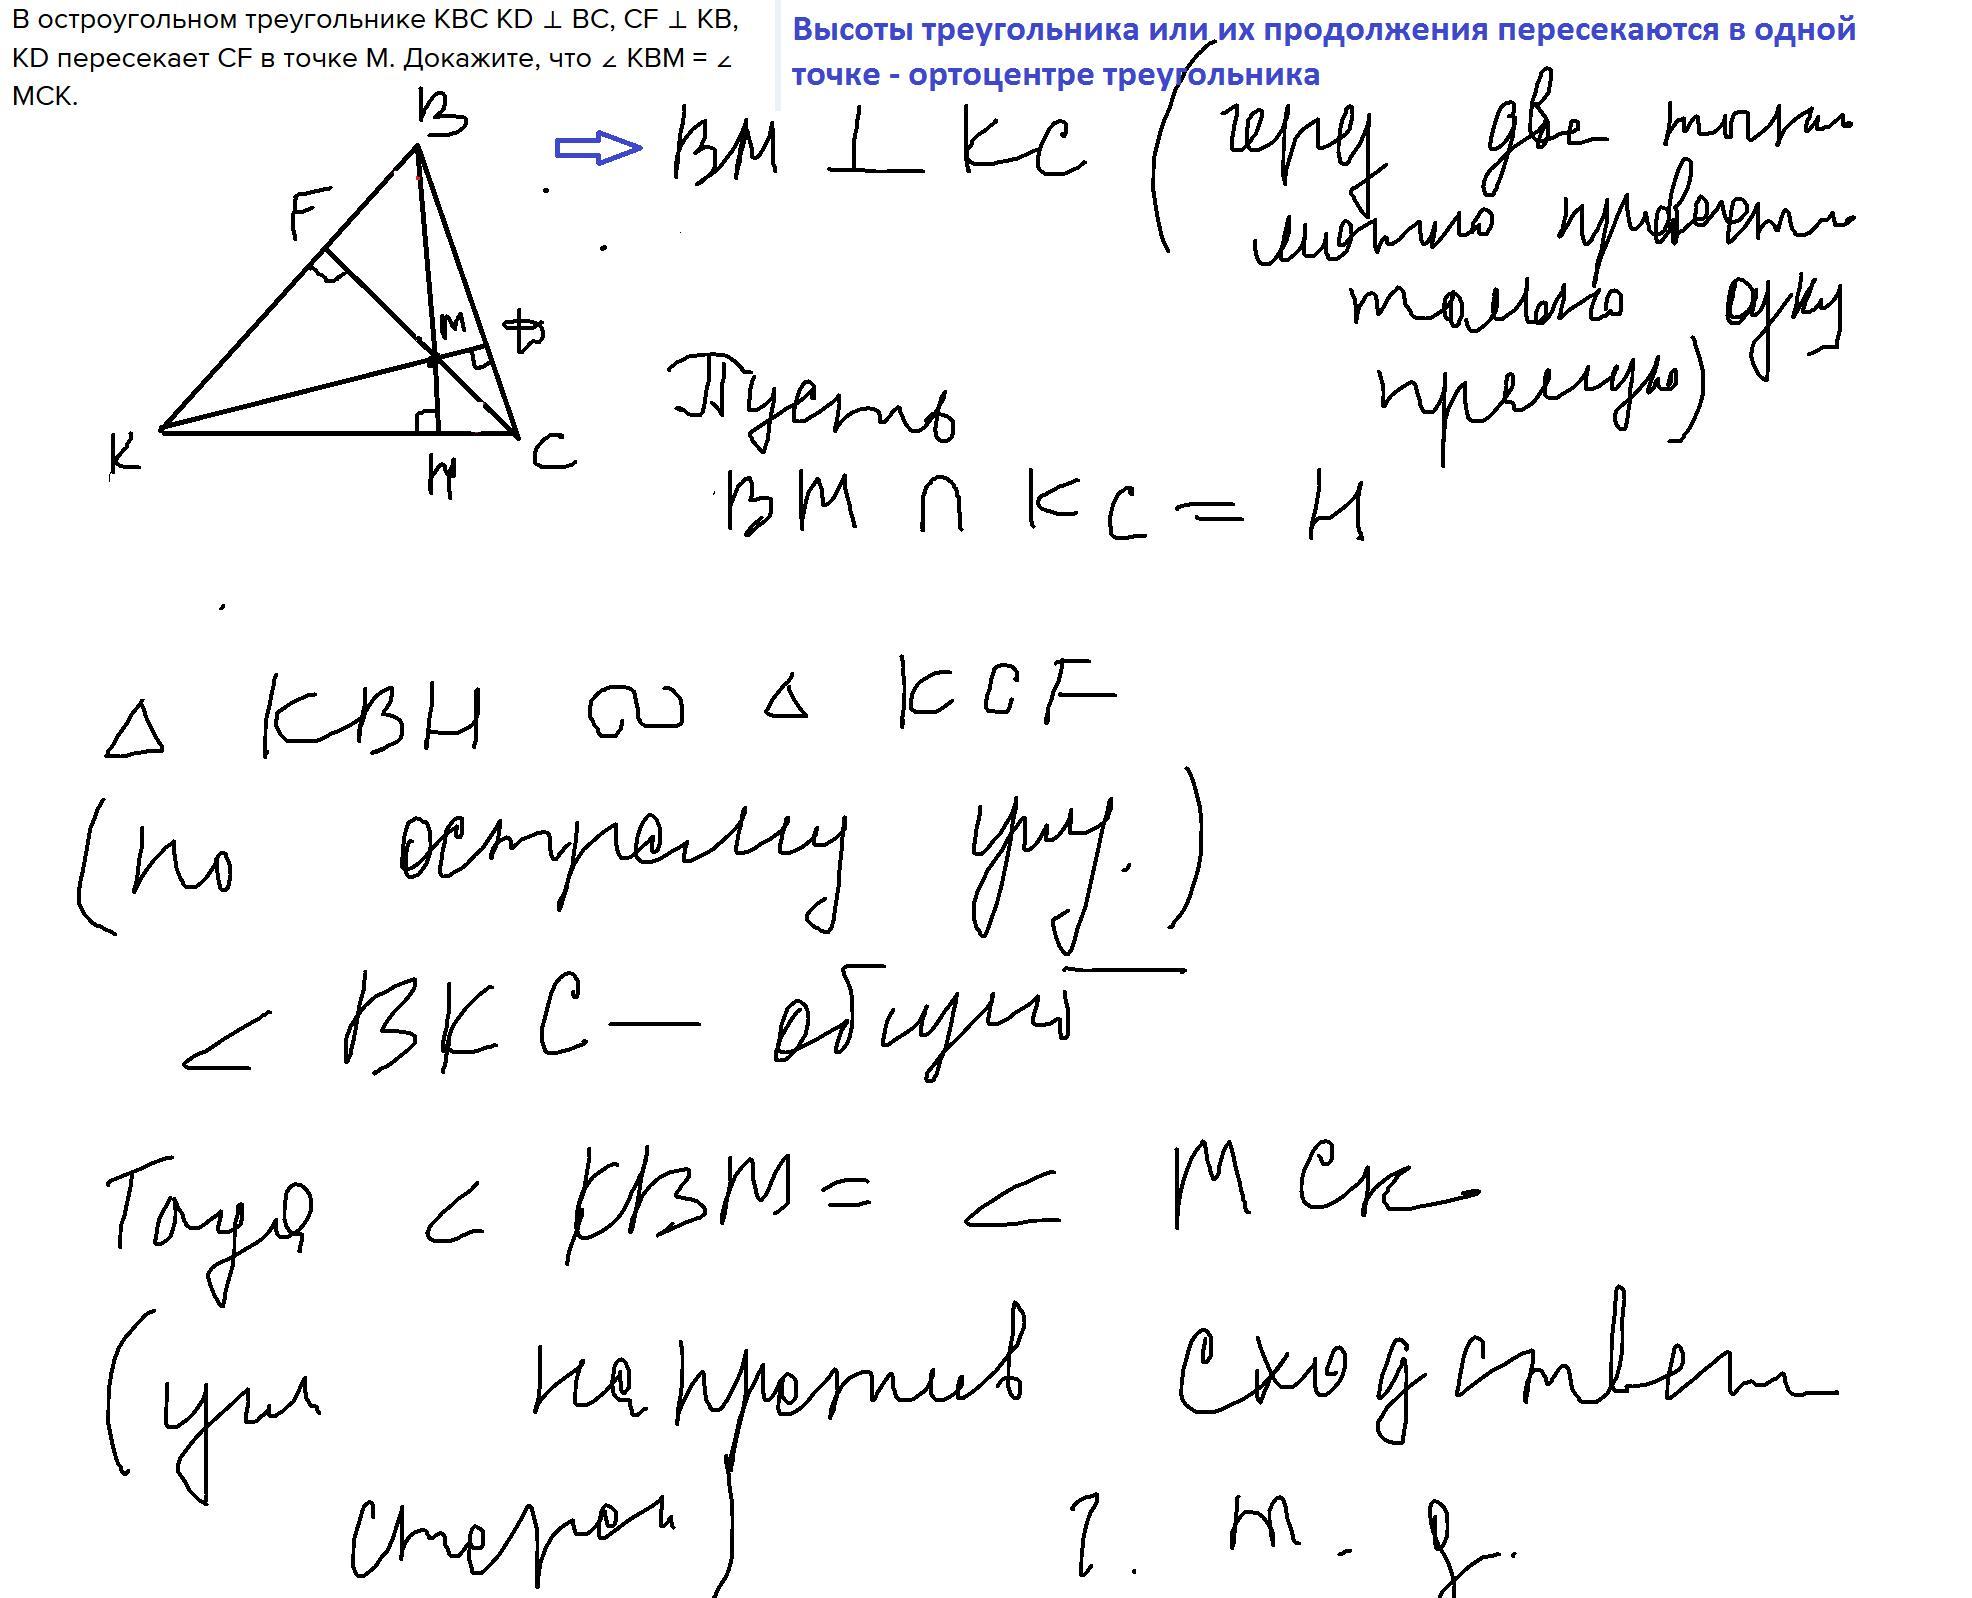 В остроугольном треугольнике KBC KD ⊥ BC, CF ⊥ KB,
KD пересекает CF в точке M. Докажите, что ∠ KBM = ∠
MCK.
Высоты треугольника или их продолжения пересекаются в одной
точке - ортоцентре треугольника
B
F
M
D
K
H
C
⇒ BM ⊥ KC (через две точки
можно провести
только одну
прямую)
Пусть
BM ∩ KC = H
△ KBH ∾ △ KCF
(по острому углу.)
< BKC — общий
Тогда < KBM = < MCK
(углы напротив сходствен
сторон) ч. т. д.